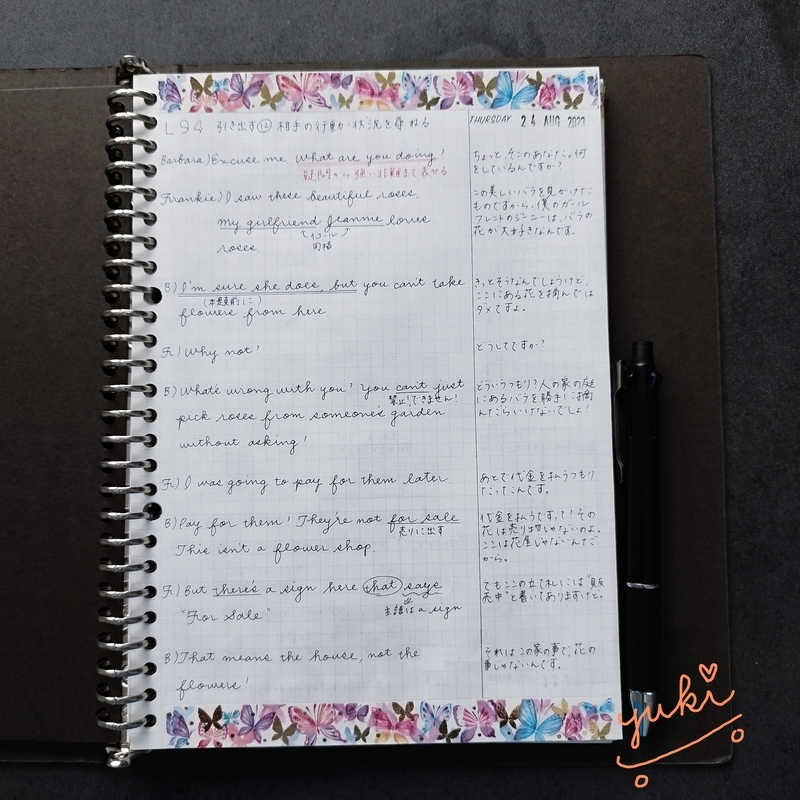 L94 引き出す⑫ 相手の行動・状況を尋ねる
THURSDAY 24 AUG 2023
Barbara) Excuse me what are you doing?
疑問から強い非難まで表せる
ちょっと、そこのあなた。何
をしているんですか?
Frankie) I saw these beautiful roses.
my girlfriend Jeannie loves
イコール
同格
roses.
この美しいバラを見かけた
ものですから。僕のガール
フレンドのジーニーは、バラの
花が大好きなんです。
B) I'm sure she does, but you can't take
(本題前に)
flowers from here
きっとそうなんでしょうけど、
ここにある花を摘んでは
ダメですよ。
Fr) Why not?
どうしてですか?
B) What's wrong with you? You can't just
禁止!できません!
pick roses from someone's garden
without asking!
どういうつもり?人の家の庭
にあるバラを勝手に摘
んだらいけないでしょ!
Fr) I was going to pay for them later
あとで代金を払うつもり
だったんです。
B) Pay for them? They're not for sale
売りに出す
This isn't a flower shop.
代金を払うですって!その
花は売り物じゃないのよ。
ここは花屋じゃないんだ
から。
Fr) But there's a sign here that says
主語は a sign
"For Sale"
でもここの立て札には"販
売中"と書いてありますけど。
B) That means the house, not the
flowers!
それはこの家の事で、花の
事じゃないんです。
yuki